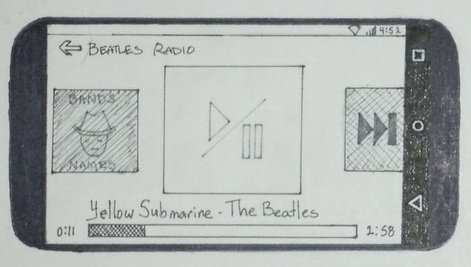 4:52
BEATLES RADIO
BANDS
NAMES
Yellow Submarine - The Beatles
0:11
2:58